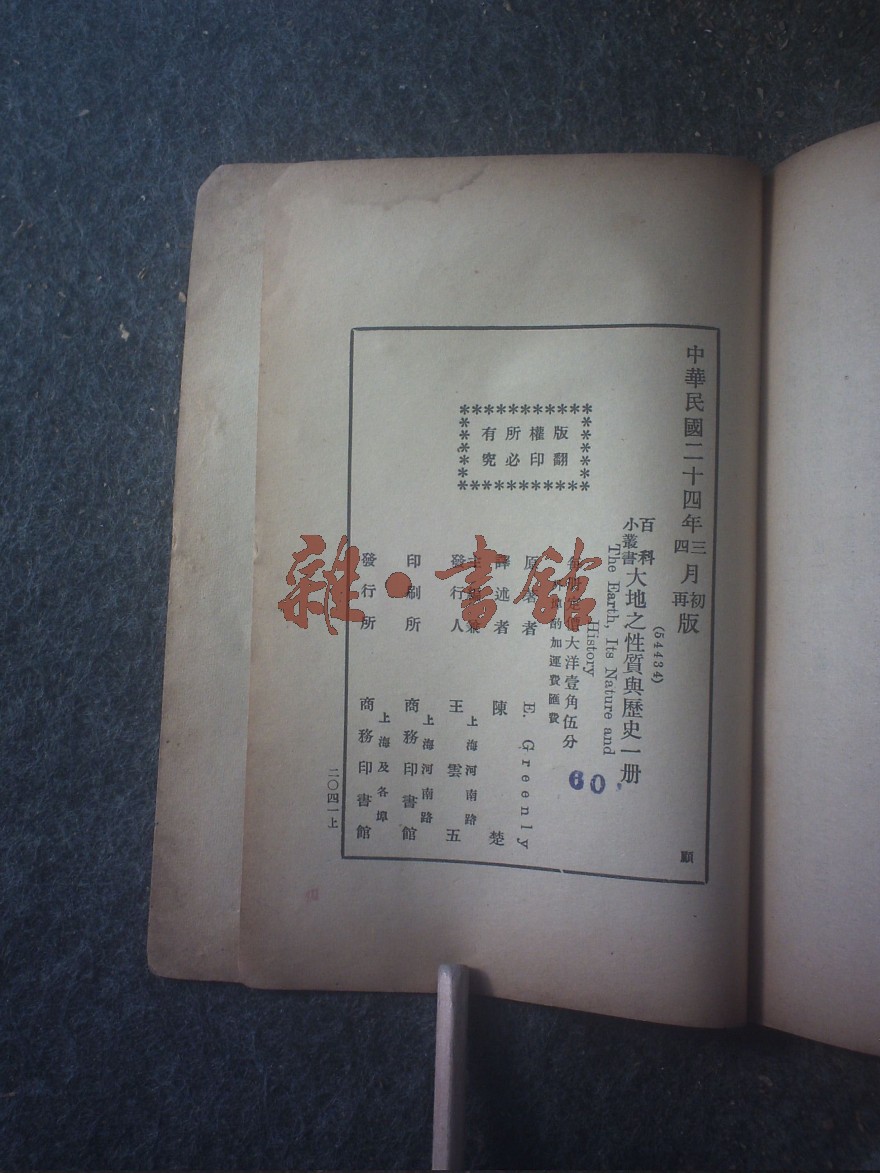 中華民國二十四年三月初版
四再
(54434)
百科小叢書 大地之性質與歷史一册
The Earth, Its Nature and
History
大洋壹角伍分
酌加運費匯費
60
原著者 E. Greenly
譯述者 陳楚
發行人 王雲五
上海河南路
印刷所 商務印書館
上海河南路
發行所 商務印書館
上海及各埠
版權所有
翻印必究
二〇四一上
顧
雜·書館